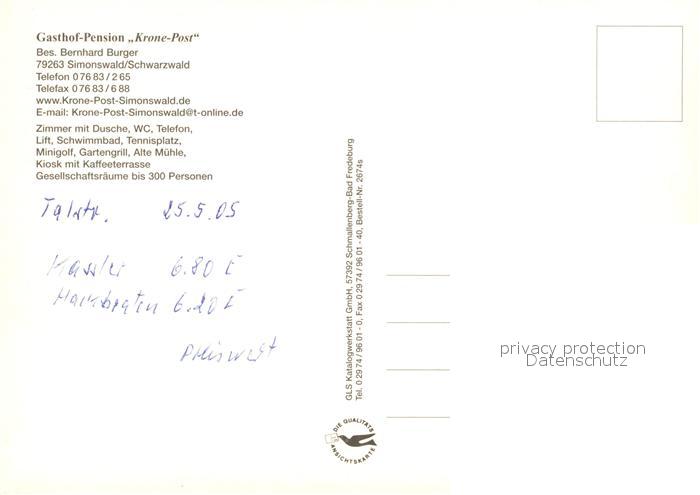 Gasthof-Pension „Krone-Post“
Bes. Bernhard Burger
79263 Simonswald/Schwarzwald
Telefon 0 76 83 / 2 65
Telefax 0 76 83 / 6 88
www.Krone-Post-Simonswald.de
E-mail: Krone-Post-Simonswald@t-online.de
Zimmer mit Dusche, WC, Telefon,
Lift, Schwimmbad, Tennisplatz,
Minigolf, Gartengrill, Alte Mühle,
Kiosk mit Kaffeeterrasse
Gesellschaftsräume bis 300 Personen
Talstr. 25.5.05
Kassler 6.80 €
Hackbraten 6.20 €
preiswert
GLS Katalogwerkstatt GmbH, 57392 Schmallenberg-Bad Fredeburg
Tel. 0 29 74 / 96 01 - 0, Fax 0 29 74 / 96 01 - 40, Bestell-Nr. 2674s
DIE QUALITÄTS
ANSICHTSKARTE
privacy protection
Datenschutz